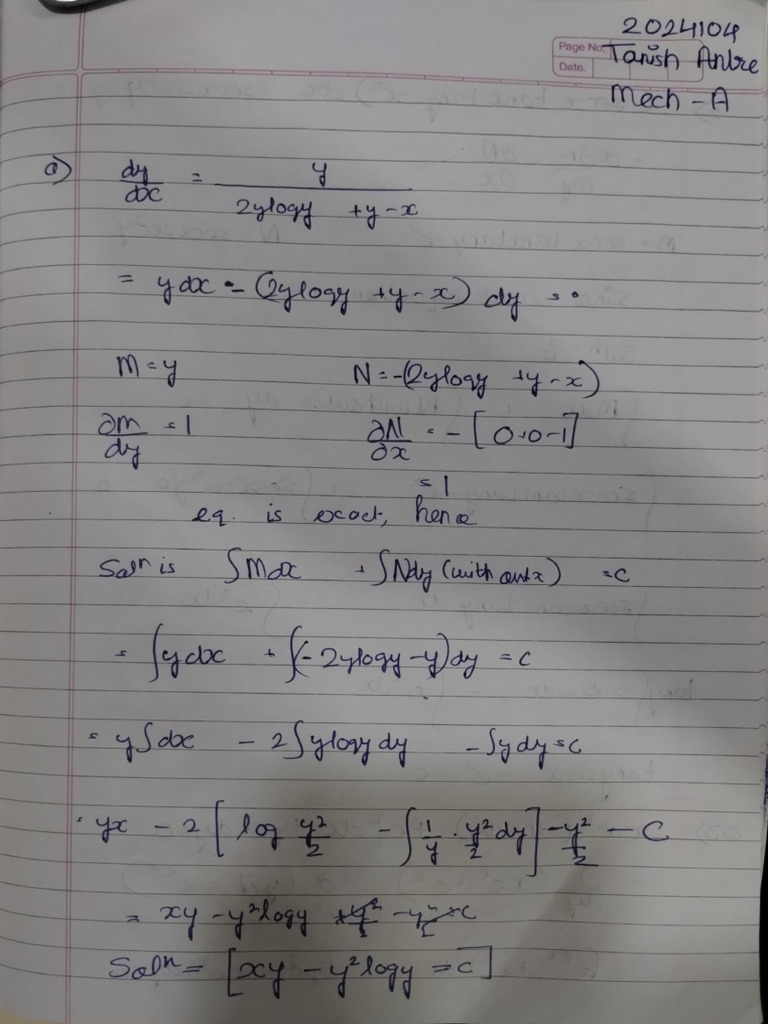 2024104
Page No. Tanish Ambre
Date.
Mech - A
a) dy/dx = y / (2ylogy + y - x)
= ydx - (2ylogy + y - x) dy = 0
M = y N = -(2ylogy + y - x)
∂m/dy = 1 ∂N/∂x = - [0+0-1]
= 1
eq. is exact, hence
Solⁿ is ∫Mdx + ∫Ndy (without x) = c
= ∫ydx + ∫(- 2ylogy - y)dy = c
= y∫dx - 2∫ylogy dy - ∫ydy = c
yx - 2 [log y²/2 - ∫ 1/y · y²/2 dy] - y²/2 - C
= xy - y²logy + y²/2 - y²/2 = c
Solⁿ = [xy - y²logy = c]